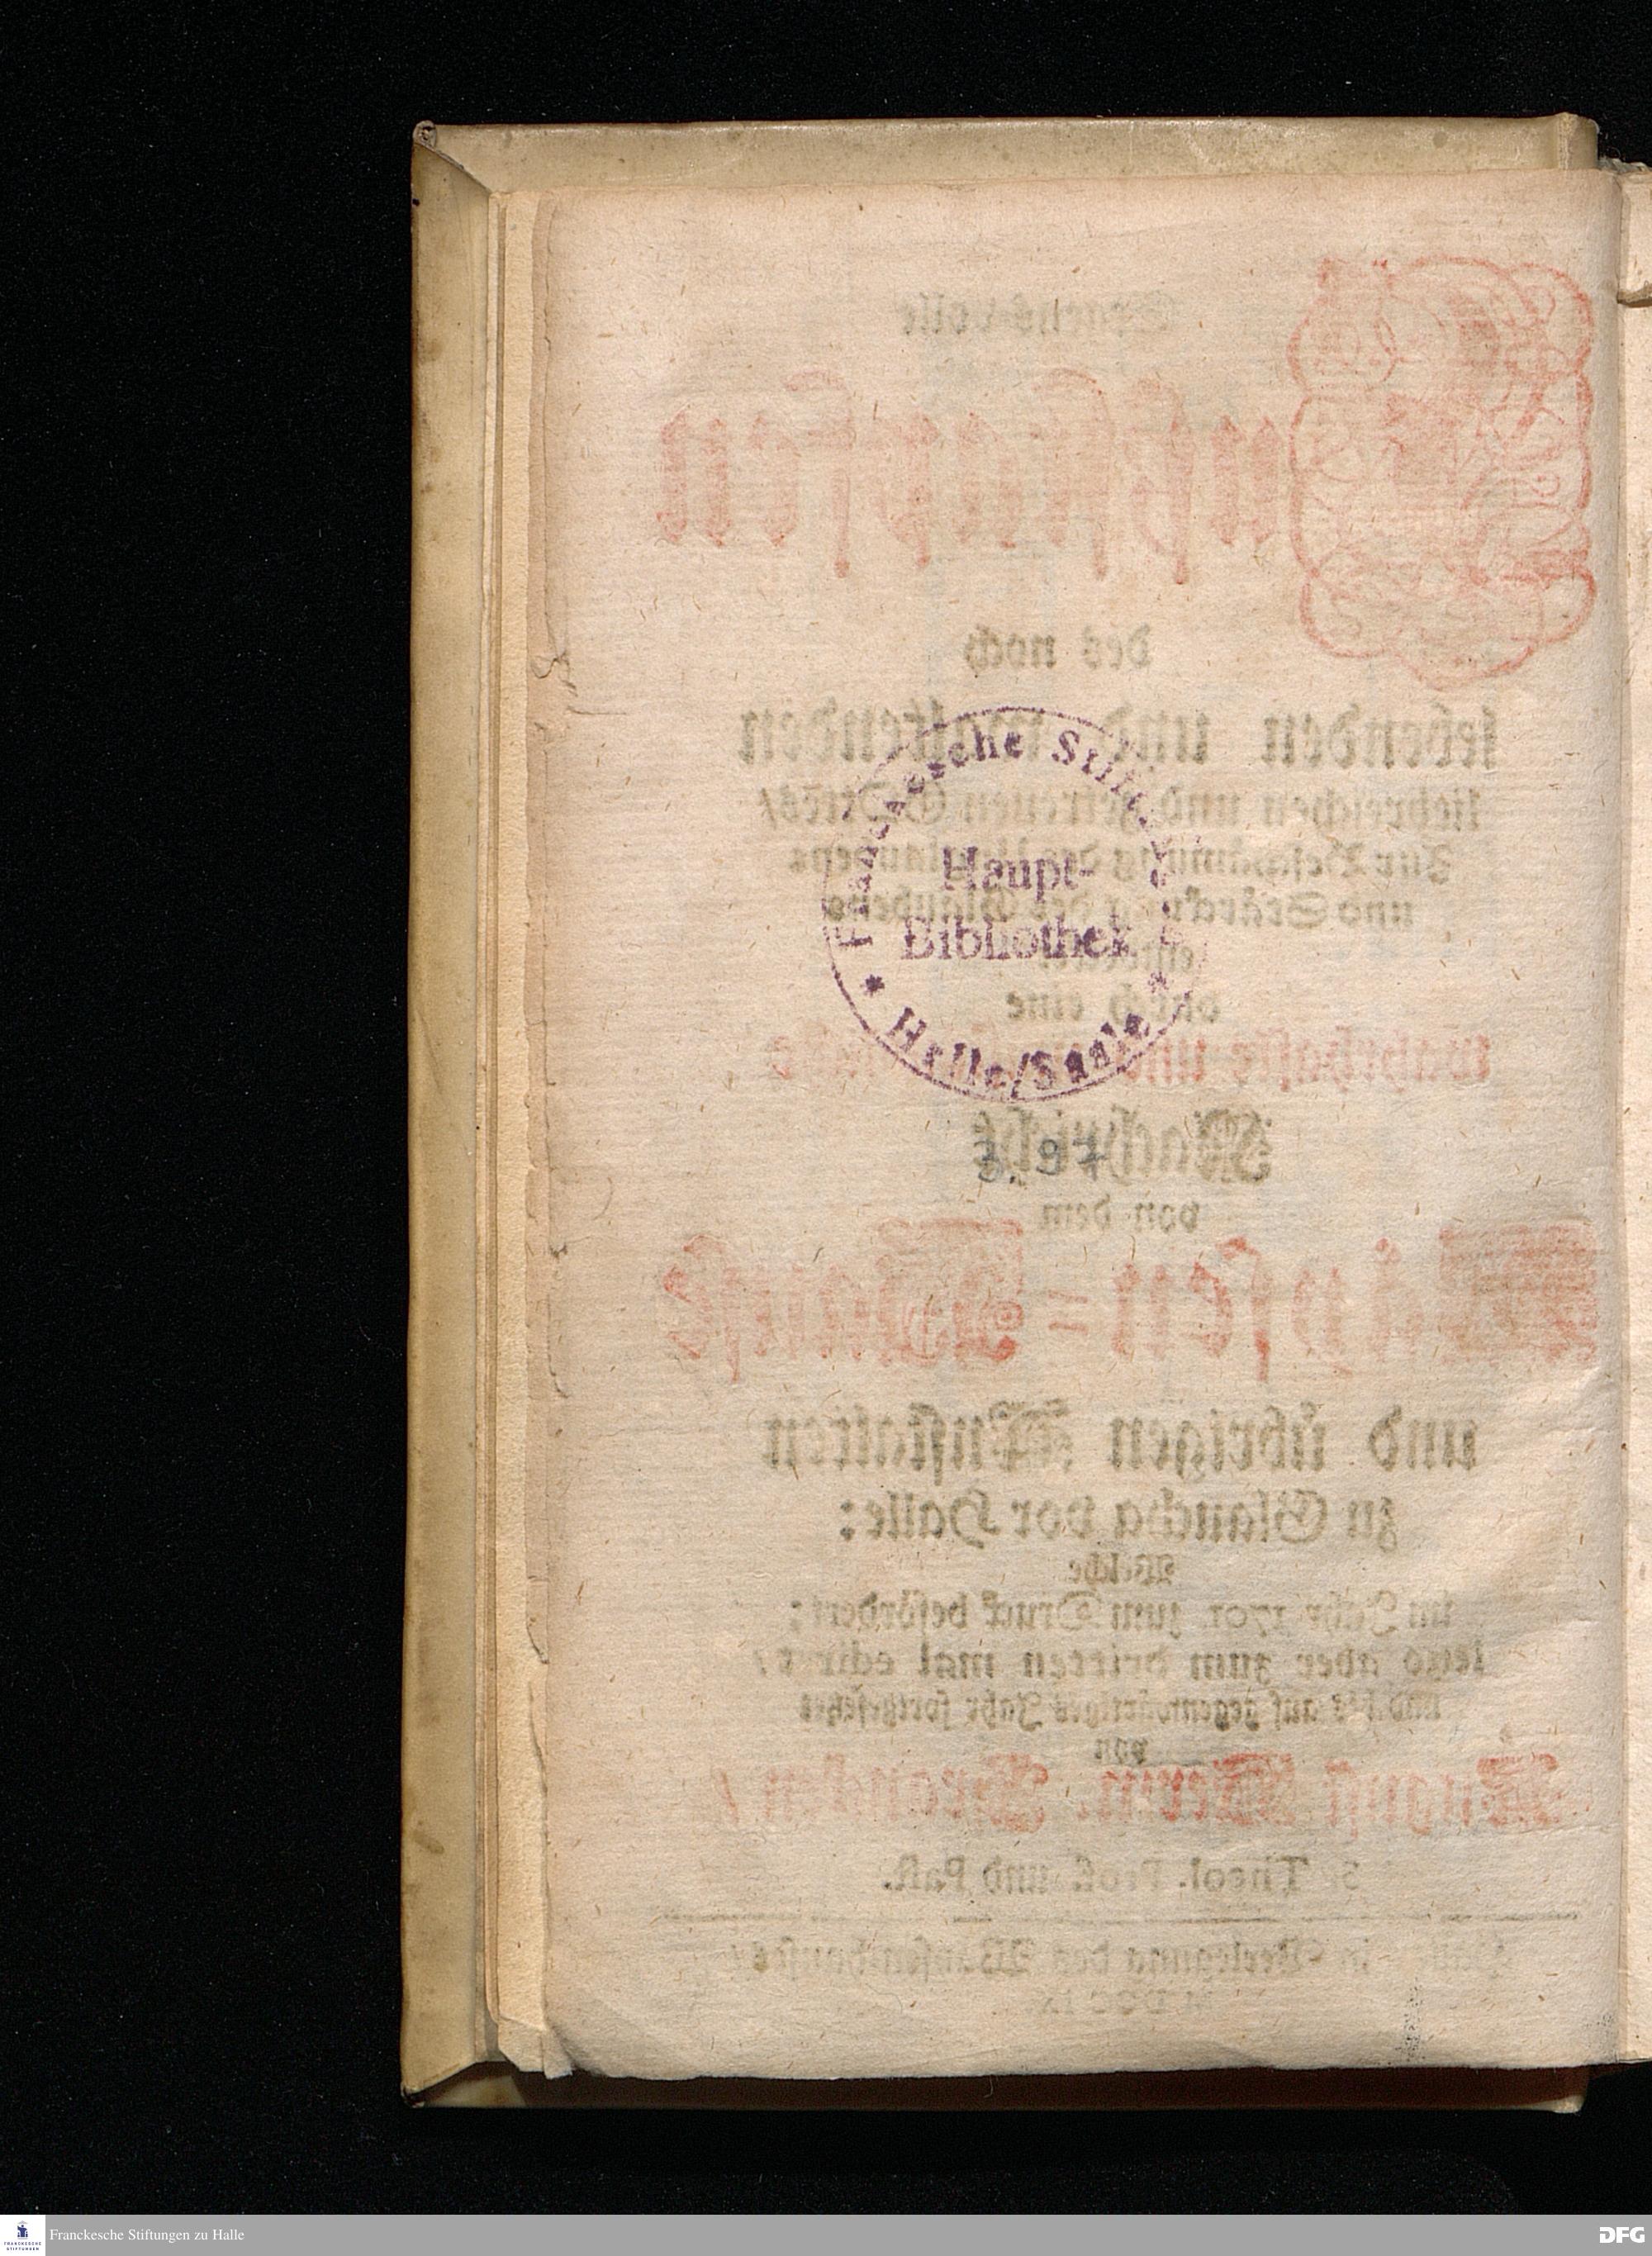 Segens-volle
Fußstapfen
des noch
lebenden und waltenden
liebreichen und getreuen GOttes/
Zur Beschämung des Unglaubens
und Stärckung des Glaubens
durch eine
wahrhafte und
Nachricht
von dem
Wäysen=Hause
und übrigen Anstalten
zu Glaucha vor Halle:
Welche
im Jahr 1701 zum Druck befördert;
ietzo aber zum dritten mal ediret/
und bis auf gegenwärtiges Jahr fortgesetzet
von
August Herm. Francken/
S. Theol. Prof. und Past.
in Verlegung des Wäysenhauses/
Franckesche Stiftungen
Haupt-
Bibliothek
* Halle/Saale *
Franckesche Stiftungen zu Halle
FRANCKESCHE
STIFTUNGEN
DFG